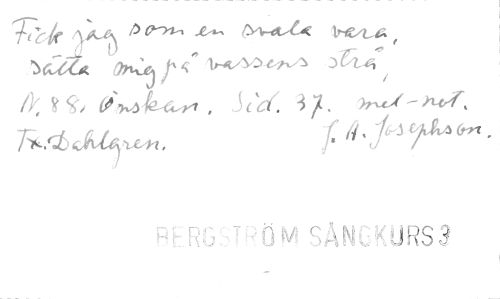 Fick jag som en svala vara,
sätta mig på vassens strå,
N. 88. Önskan. Sid. 37. mel-not.
Tx. Dahlgren. J. A. Josephson.
BERGSTRÖM SÅNGKURS 3